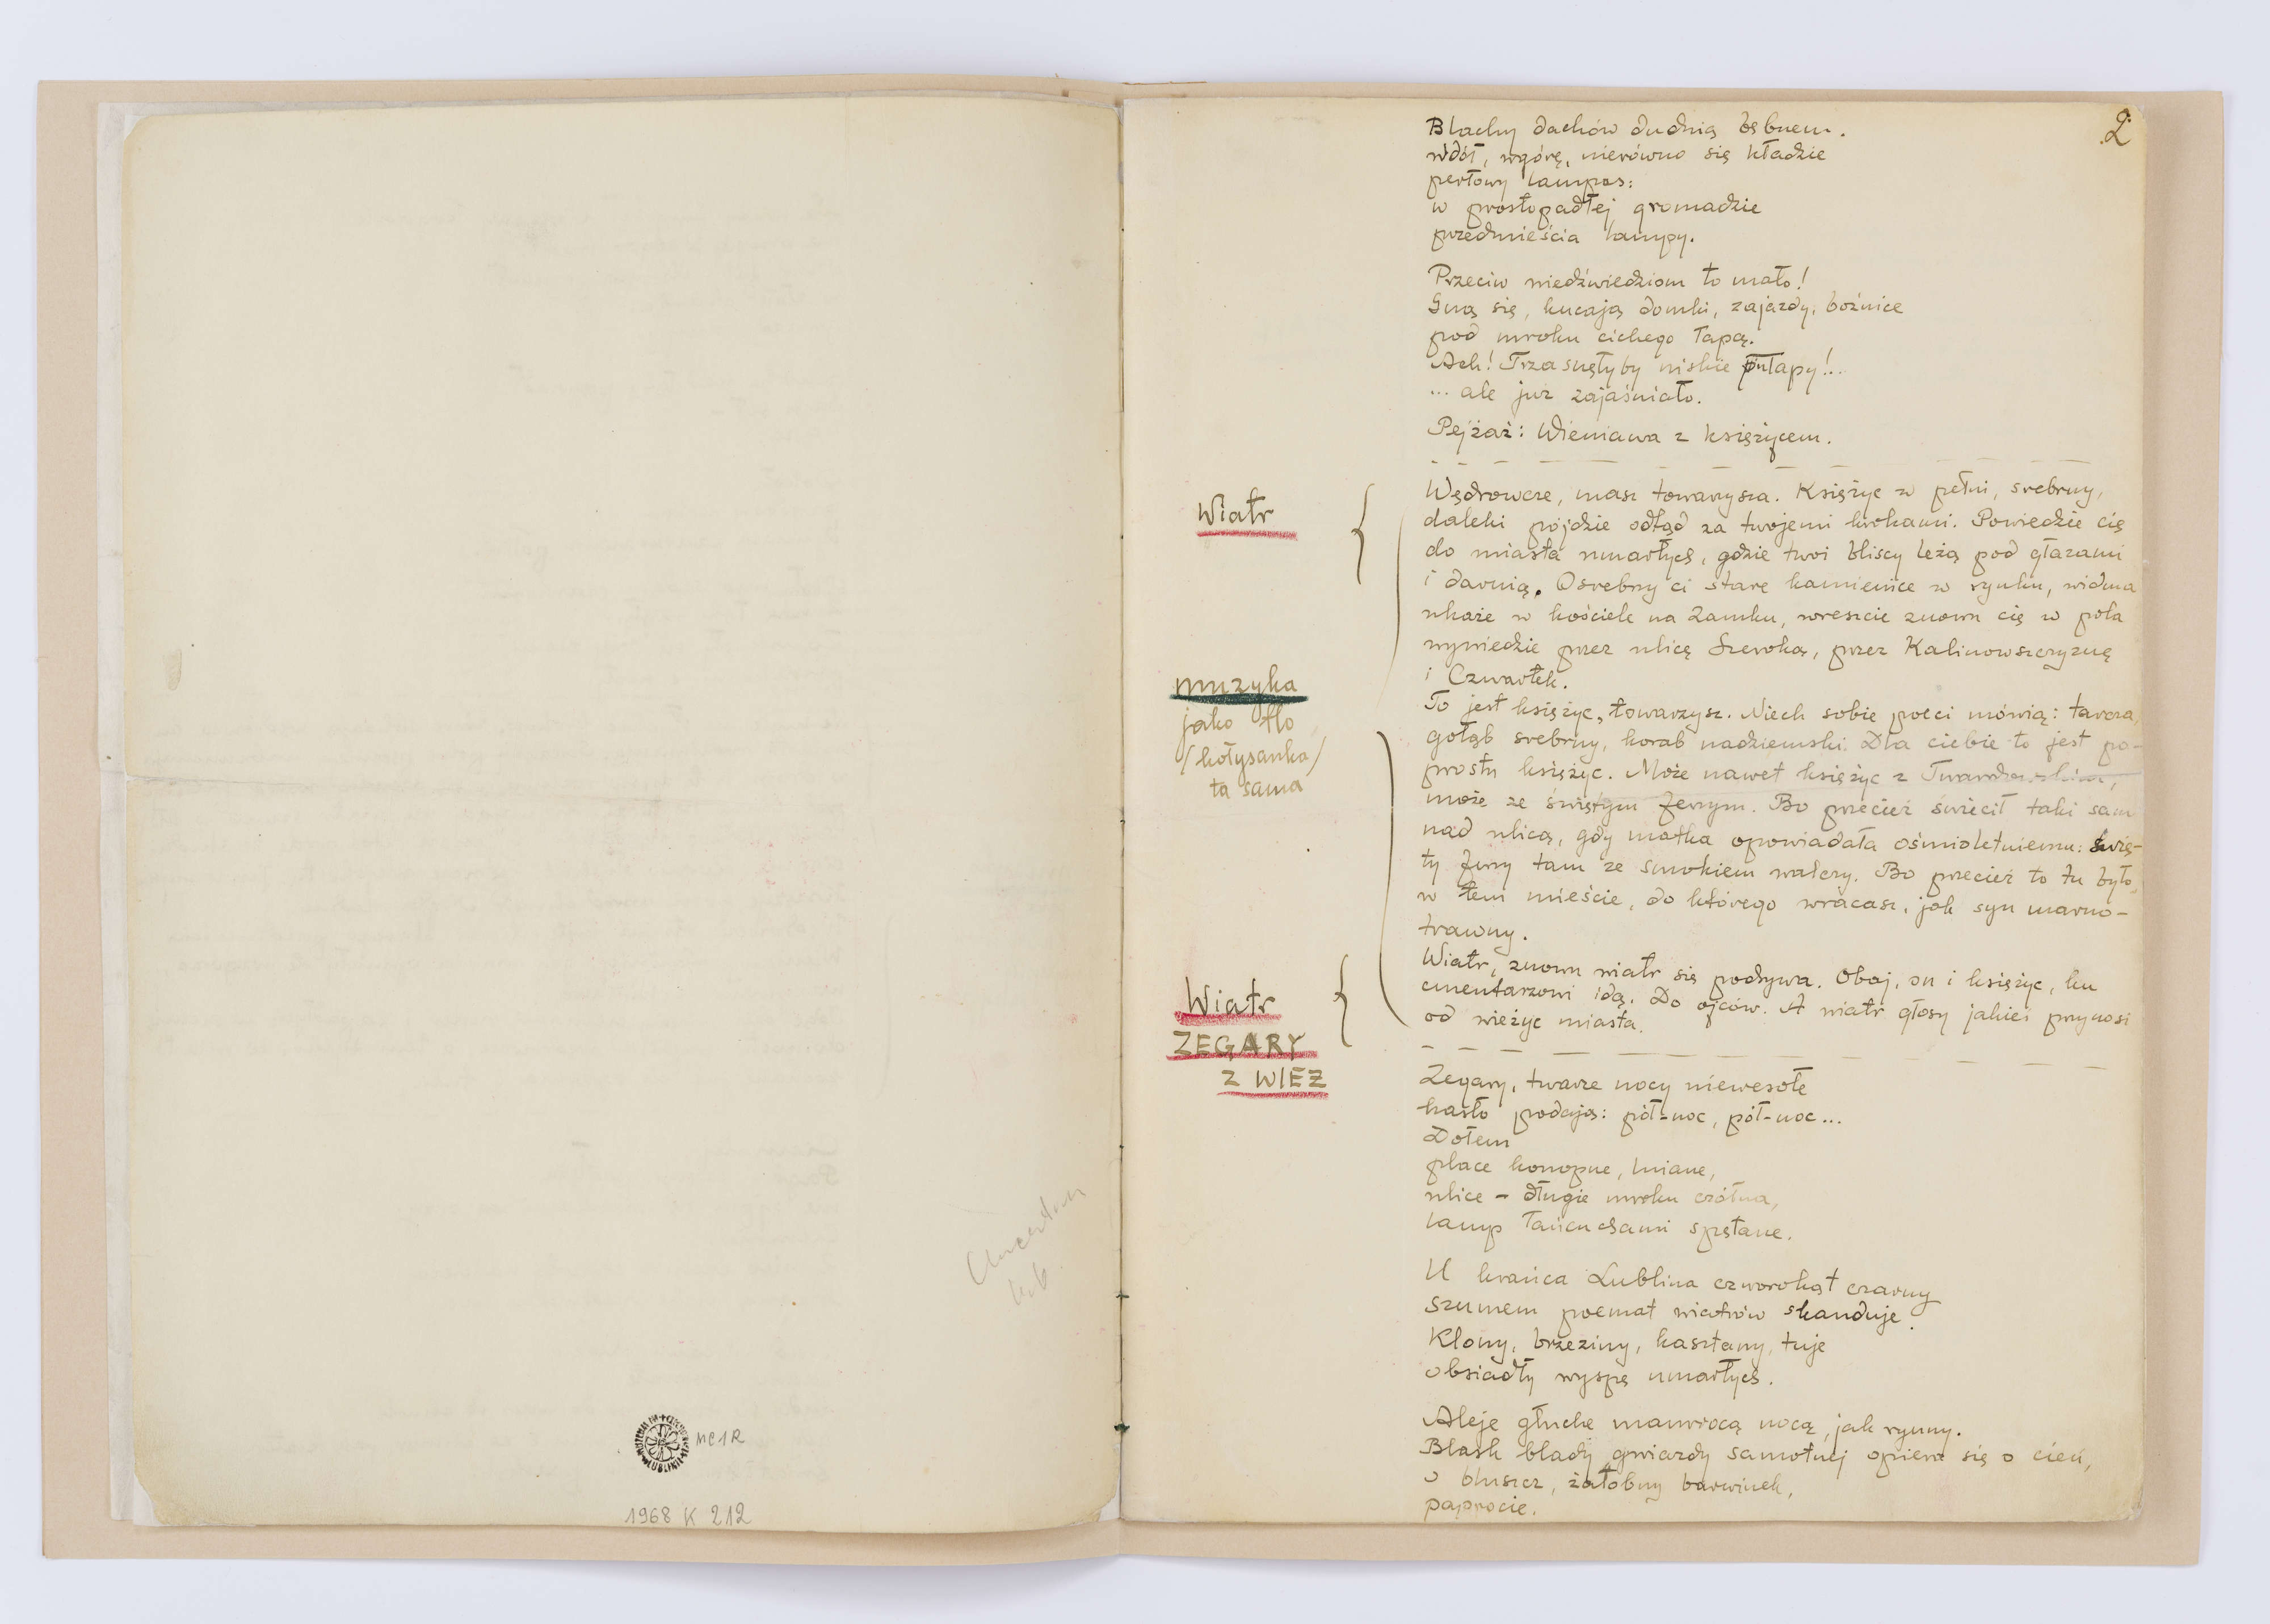 Cmentarz
MC1R
1968 K 212
2.
Blachy dachów dudnią bębnem.
wdół, wgórę, nierówno się kładzie
perłowy lampas:
w prostopadłej gromadzie
przedmieścia lampy.
Przeciw niedźwiedziom to mało!
Gną się, kucają domki, zajazdy, bożnice
pod mroku cichego łapą.
Ach! Trzasnęłyby niskie pułapy!..
... ale już zajaśniało.
Pejzaż: Wieniawa z księżycem.
Wiatr
Wędrowcze, masz towarzysza. Księżyc w pełni, srebrny,
daleki pójdzie odtąd za twojemi krokami. Powiedzie cię
do miasta umarłych, gdzie twoi bliscy leżą pod głazami
i darnią. Osrebrzy ci stare kamienice w rynku, widma
ukaże w kościele na Zamku, wreszcie znowu cię w pola
wywiedzie przez ulicę Szeroką, przez Kalinowszczyznę
i Czwartek.
muzyka
jako tło
/kołysanka/
ta sama
To jest księżyc, towarzysz. Niech sobie poeci mówią: tarcza,
gołąb srebrny, korab nadziemski. Dla ciebie to jest po-
prostu księżyc. Może nawet księżyc z Twardowskim,
może ze świętym Jerzym. Bo przecież świecił taki sam
nad ulicą, gdy matka opowiadała ośmioletniemu: świę-
ty Jerzy tam ze smokiem walczy. Bo przecież to tu było,
w tem mieście, do którego wracasz, jak syn marno-
trawny.
Wiatr
ZEGARY
Z WIEŻ
Wiatr, znowu wiatr się podrywa. Obaj, on i księżyc, ku
cmentarzowi idą. Do ojców. A wiatr głosy jakieś przynosi
od wieżyc miasta.
Zegary, twarze nocy niewesołe
hasło podają: pół-noc, pół-noc...
Dołem
place konopne, lniane,
ulice – długie mroku czółna,
lamp łańcuchami spętane.
U krańca Lublina czworokąt czarny
szumem poemat wiatrów skanduje.
Klony, brzeziny, kasztany, tuje
obsiadły wyspę umarłych.
Aleje głuche mamrocą nocą, jak rynny.
Blask blady gwiazdy samotnej opiera się o cień,
o bluszcz, żałobny barwinek,
paprocie.